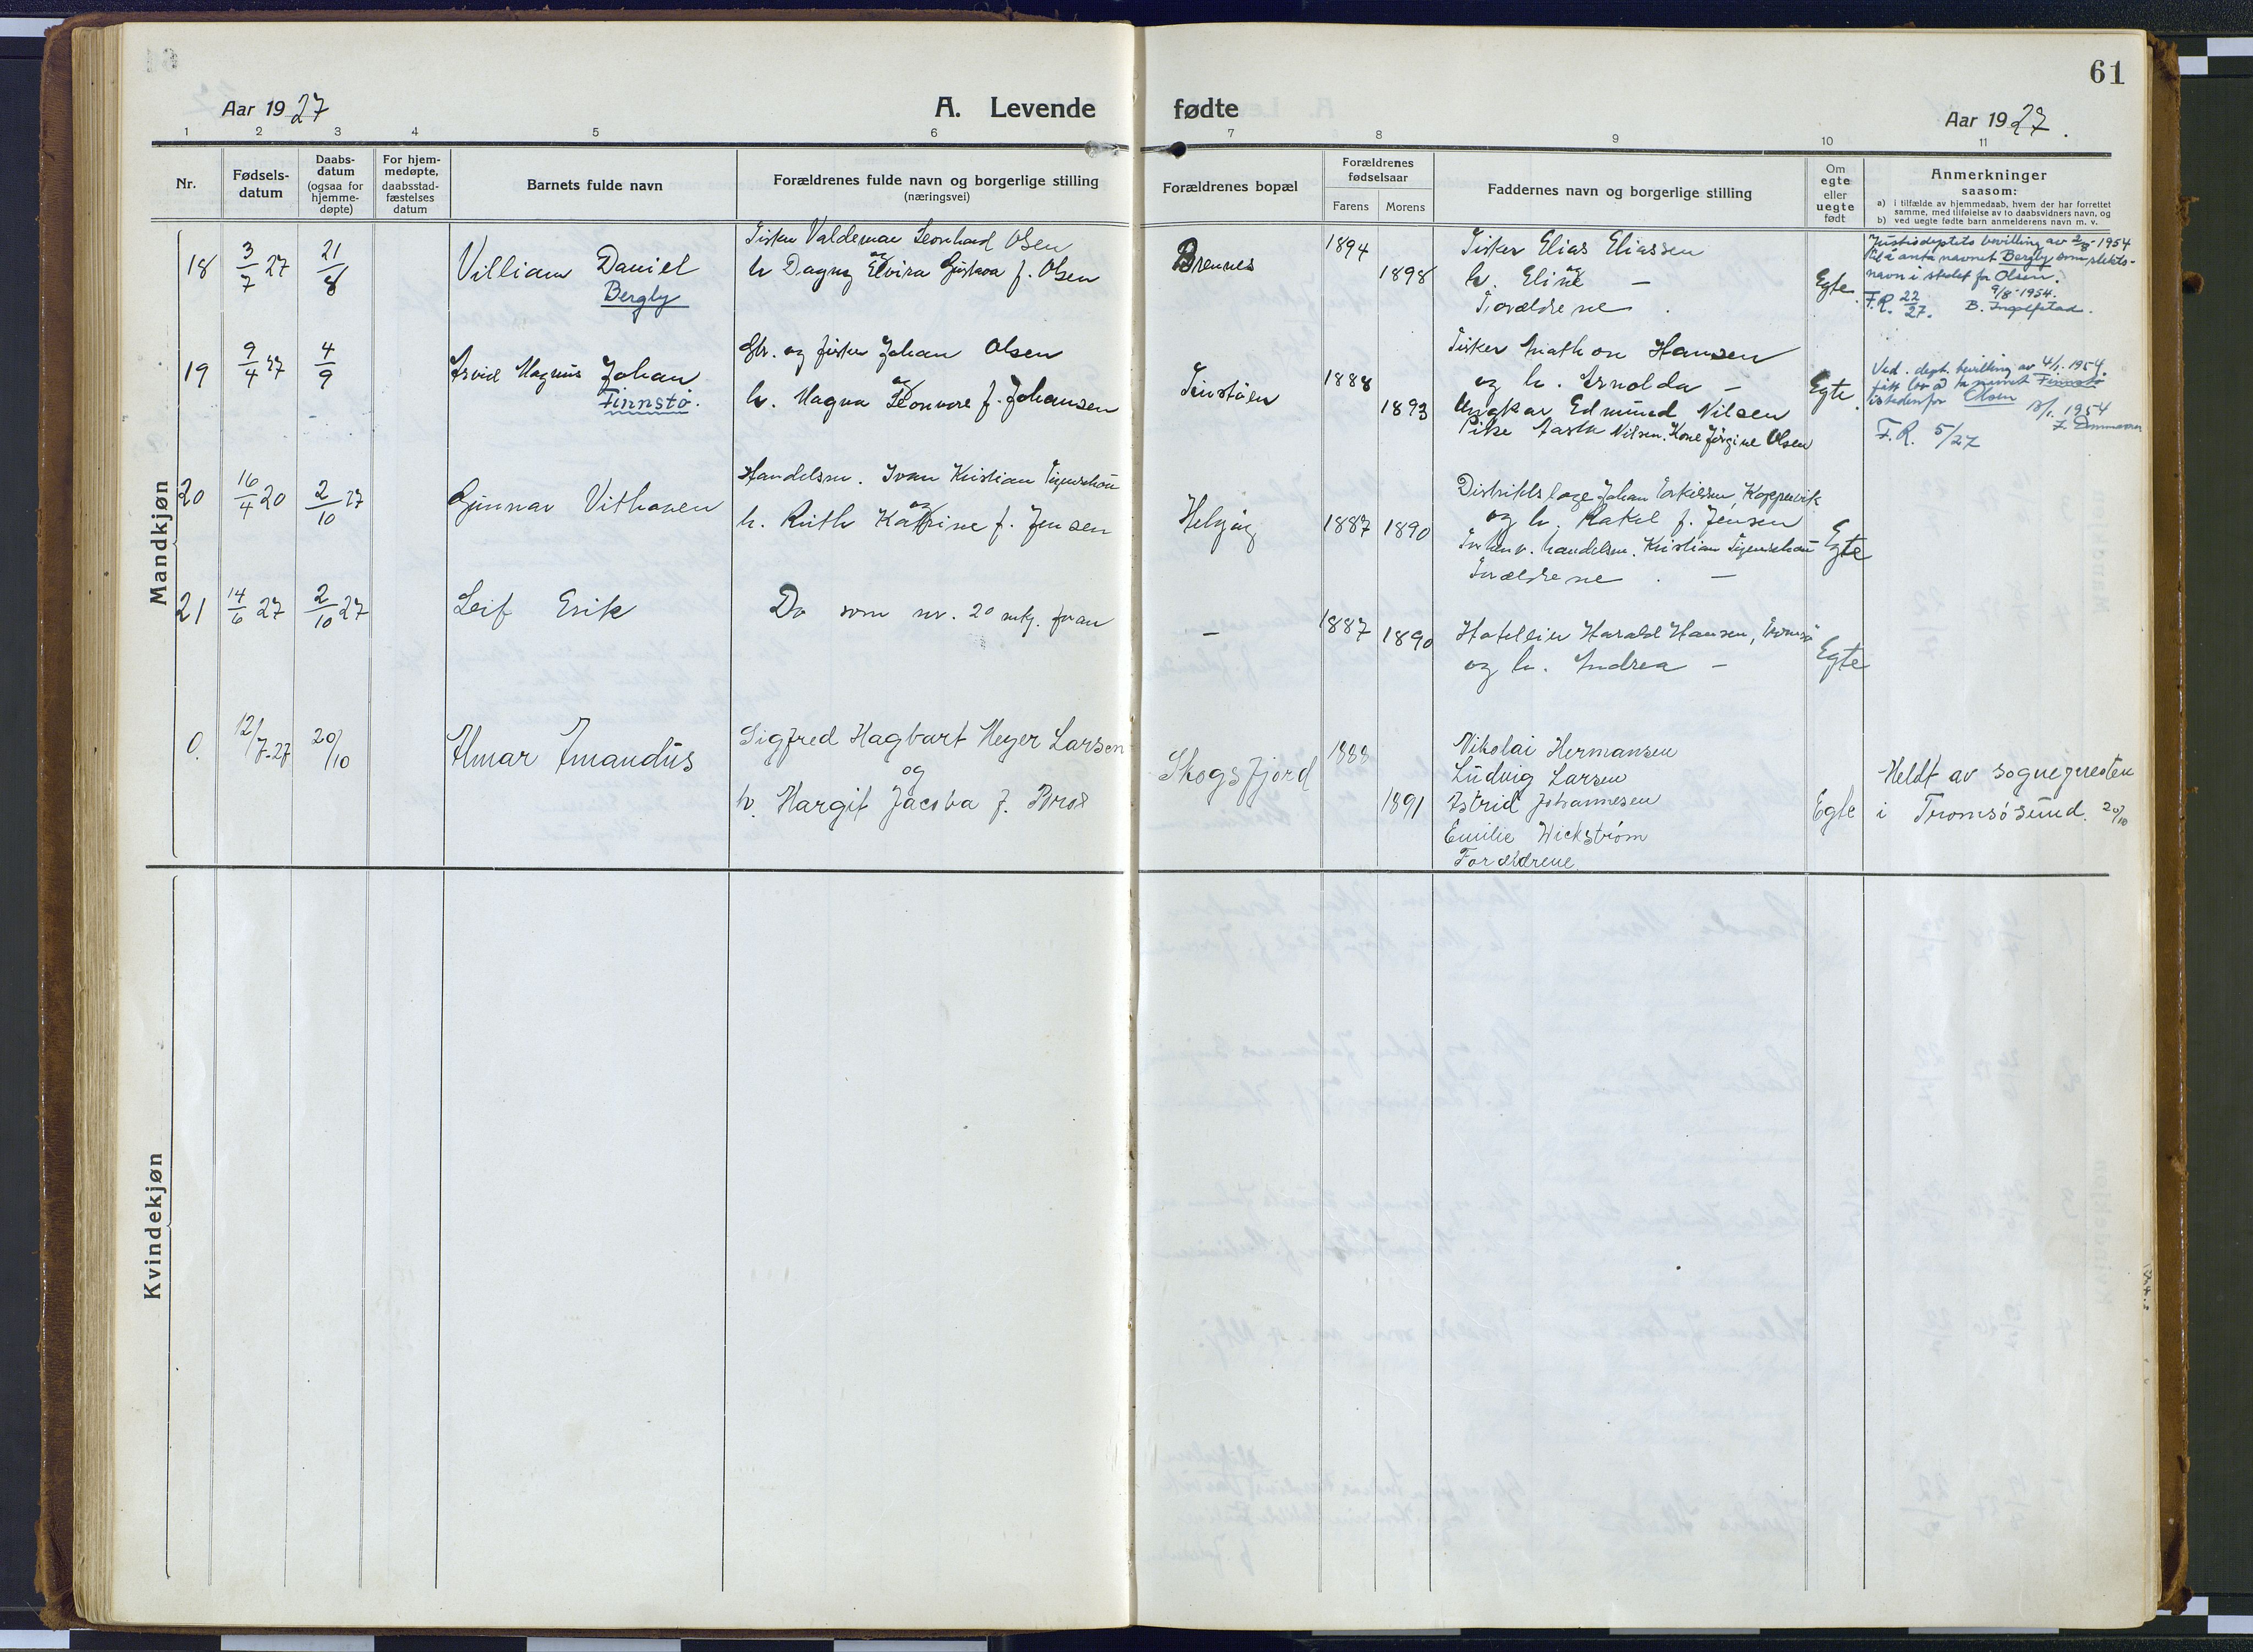 61
Aar 1927
A. Levende fødte
Aar 1927.
1 2 3 4 5 6 7 8 9 10 11
Nr.
Fødsels-
datum
Daabs-
datum
(ogsaa for
hjemme-
døpte)
For hjem-
medøpte,
daabsstad-
fæstelses
datum
Barnets fulde navn
Forældrenes fulde navn og borgerlige stilling
(næringsvei)
Forældrenes bopæl
Forældrenes
fødselsaar
Farens
Morens
Faddernes navn og borgerlige stilling
Om
egte
eller
uegte
født
Anmerkninger
saasom:
a) i tilfælde av hjemmedaab, hvem der har forrettet
samme, med tilføielse av to daabsvidners navn, og
b) ved uegte fødte barn anmelderens navn m. v.
Mandkjøn
18
3/7 27
21/8
Villiam Daniel
Bergly
Fisker Valdemar Leonhard Olsen
og
h. Dagny Elvira f. Olsen
Brennes
1894
1898
Fisker Elias Eliassen
og
h. Eline —
Forældrene
Egte
Justisdeptets bevilling av 2/8-1954
til å anta navnet Bergly som slekts-
navn i stedet for Olsen.
9/8-1954.
F.R. 22/27. B. Ingolfstad.
19
9/4 27
4/9
Arvid Magnus Johan
Finnstø.
Gbr. og fisker Johan Olsen
og
h. Magna Leonore f. Johansen
1888
1893
Fisker Mathon Hansen
og h. Arnolda —
Ungkar Edmund Nilsen
Pike Aasta Nilsen. Kone Jörgine Olsen
Egte
Ved. dept. bevilling av 4/1. 1954.
fått lov å ta navnet Finnstø
istedenfor Olsen
13/1. 1954
F.R. 5/27
20
16/4 20
2/10 27
Gunnar
Handelsm. Ivar Kristian
og
h. Ruth Katrine f. Jensen
Helgøy
1887
1890
Distriktslæge Johan
og h. Rakel f. Jensen
handelsm. Kristian
Forældrene —
Egte
21
14/6 27
2/10 27
Leif Erik
Do som nr. 20 foran
—
1887
1890
Hotelleier Harald Hansen, Tromsø
og h. Andrea —
Egte
0.
12/7-27
20/10
Almar Amandus
Sigfred Hagbart Meyer Larsen
og
h. Margit Jacoba f. Brox
Skogsfjord
1888
1891
Nikolai Hermansen
Ludvig Larsen
Astrid Johannesen
Emilie Wickstrøm
Forældrene
Egte
Meldt av sognepresten
i Tromsøsund. 20/10
Kvindekjøn